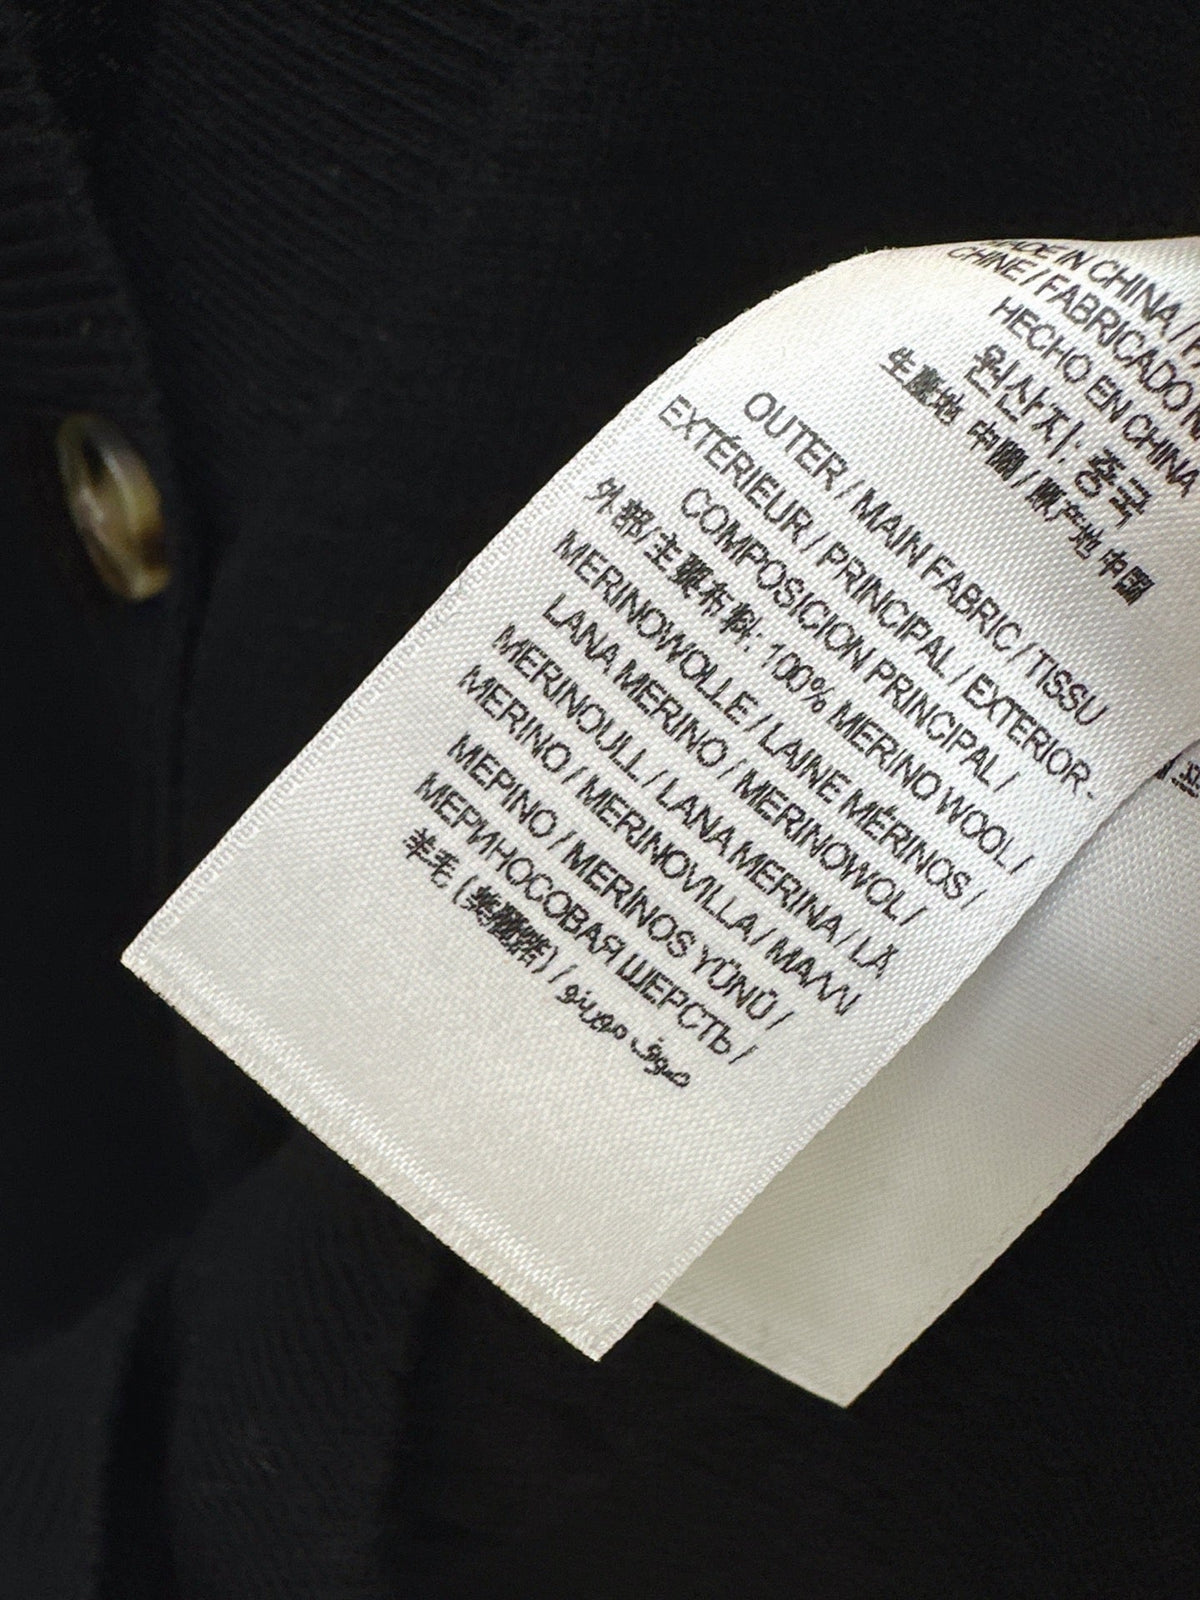 MADE IN CHINA /
CHINE / FABRICADO
HECHO EN CHINA
원산지: 중국
生產地 中國 / 原产地 中國
OUTER / MAIN FABRIC / TISSU
EXTÉRIEUR / PRINCIPAL / EXTERIOR -
COMPOSICION PRINCIPAL /
外部/主要布料: 100% MERINO WOOL /
MERINOWOLLE / LAINE MÉRINOS /
LANA MERINO / MERINOWOL /
MERINOULL / LANA MERINA / LÃ
MERINO / MERINOVILLA / ΜΑΛΛΙ
ΜΕΡΙΝΟ / MERİNOS YÜNÜ /
МЕРИНОСОВАЯ ШЕРСТЬ /
羊毛 (美麗諾) / صوف مورينو